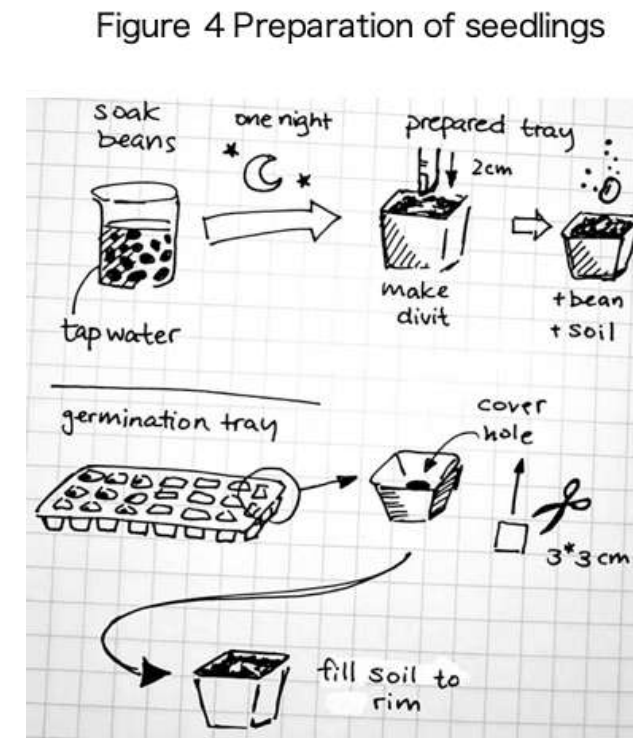 Figure 4 Preparation of seedlings
soak
beans
one night
prepared tray
2cm
tap water
make
divit
+ bean
+ soil
germination tray
cover
hole
3*3 cm
fill soil to
rim